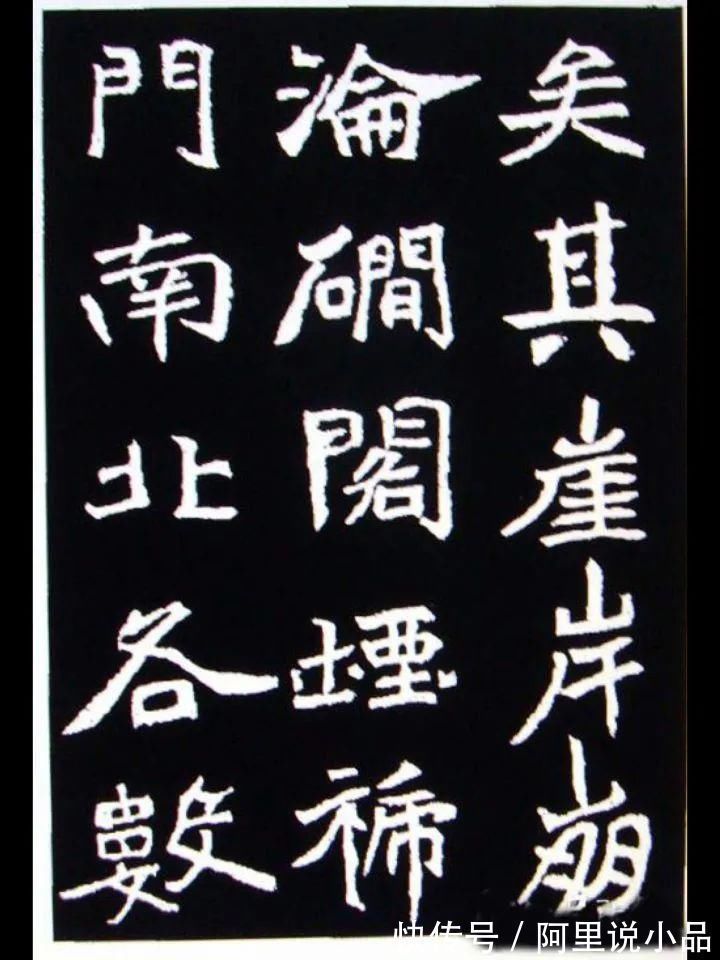 矣其崖岸崩
淪磵閣堙褫
門南北各數
快传号 / 阿里说小品